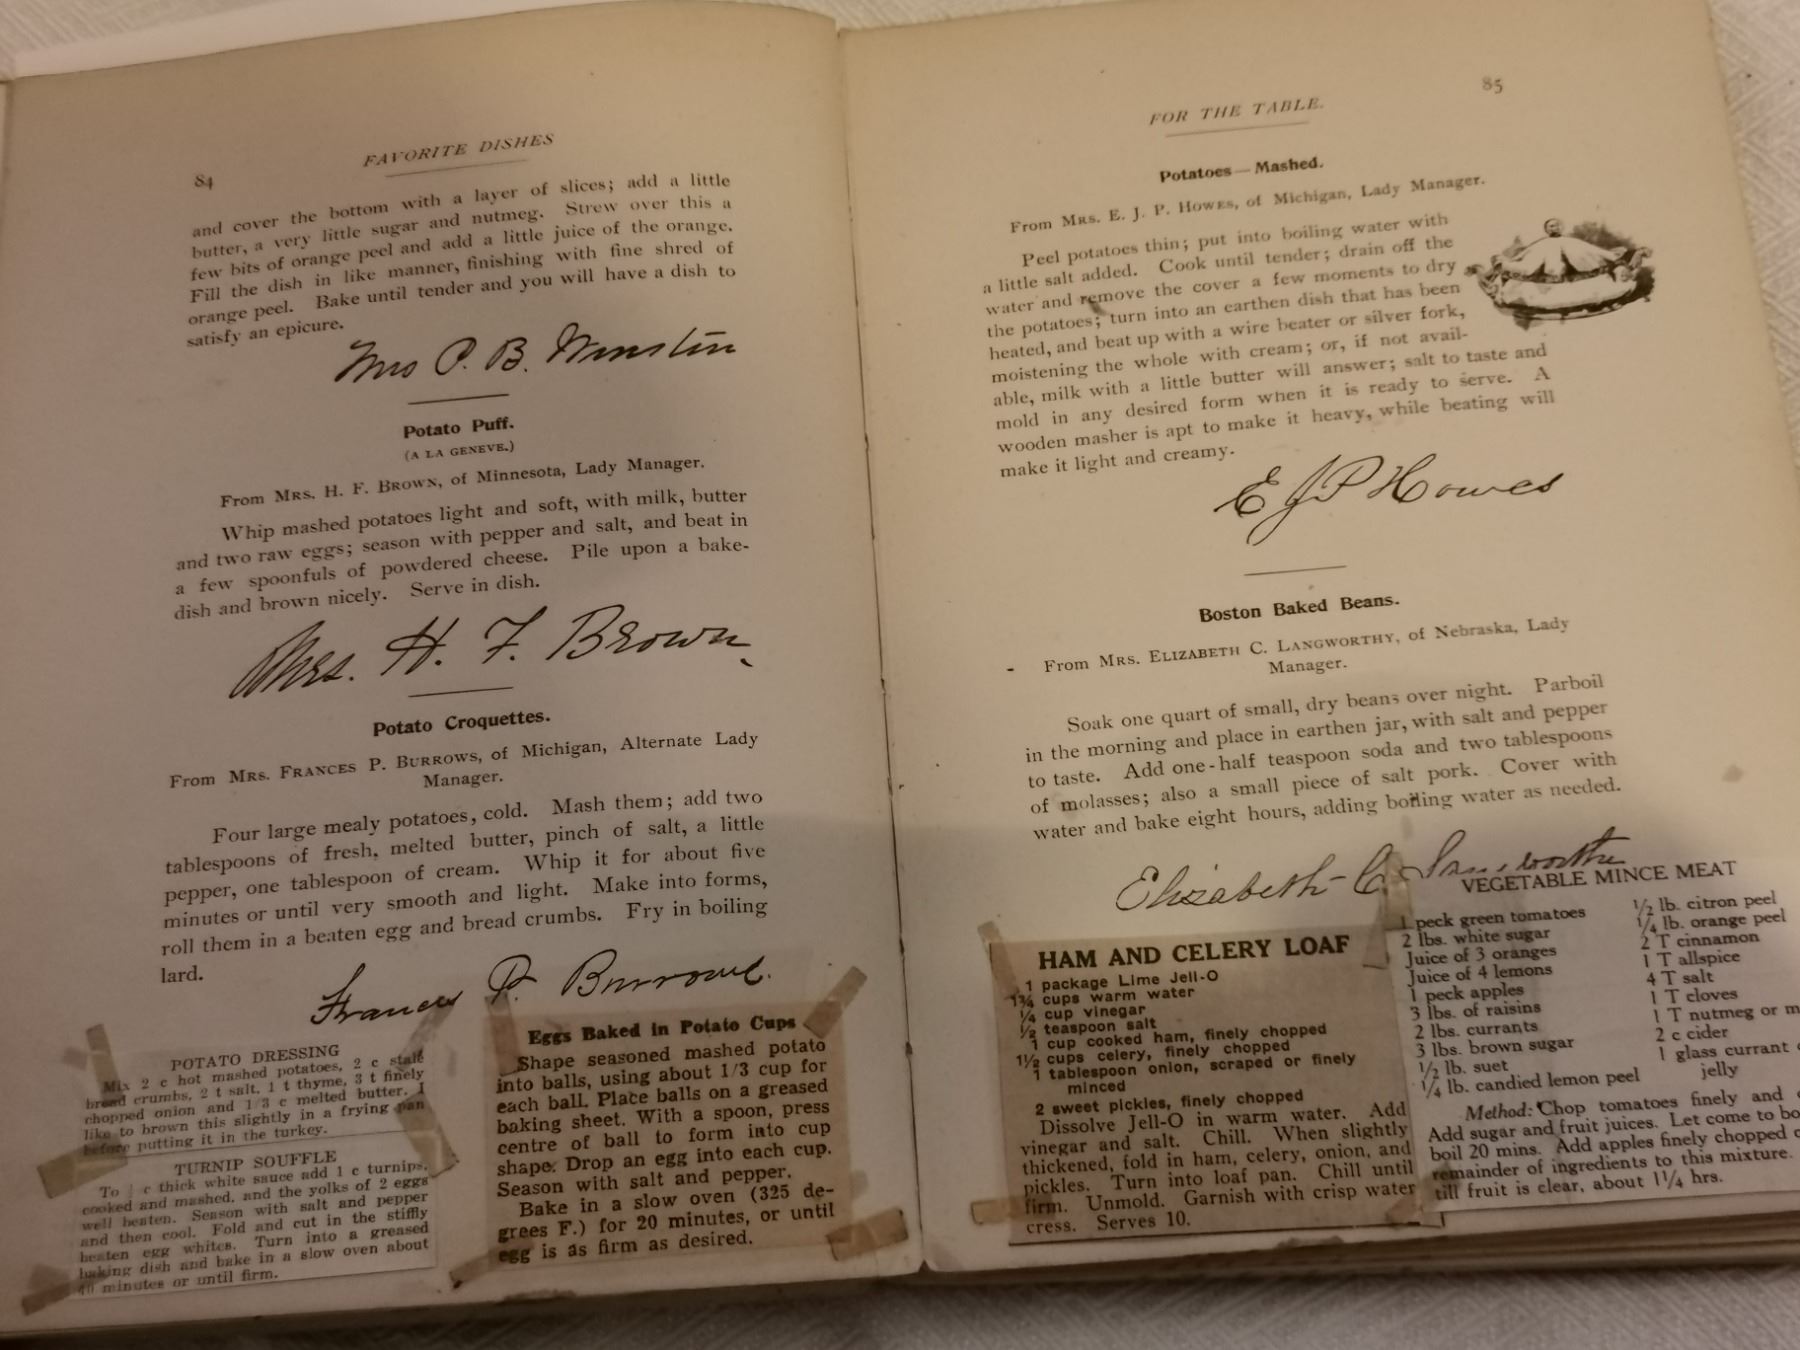 84
FAVORITE DISHES
and cover the bottom with a layer of slices; add a little
butter, a very little sugar and nutmeg. Strew over this a
few bits of orange peel and add a little juice of the orange.
Fill the dish in like manner, finishing with fine shred of
orange peel. Bake until tender and you will have a dish to
satisfy an epicure.
Mrs P. B. Winston
Potato Puff.
(A LA GENEVE.)
From MRS. H. F. BROWN, of Minnesota, Lady Manager.
Whip mashed potatoes light and soft, with milk, butter
and two raw eggs; season with pepper and salt, and beat in
a few spoonfuls of powdered cheese. Pile upon a bake-
dish and brown nicely. Serve in dish.
Mrs. H. F. Brown
Potato Croquettes.
From MRS. FRANCES P. BURROWS, of Michigan, Alternate Lady
Manager.
Four large mealy potatoes, cold. Mash them; add two
tablespoons of fresh, melted butter, pinch of salt, a little
pepper, one tablespoon of cream. Whip it for about five
minutes or until very smooth and light. Make into forms,
roll them in a beaten egg and bread crumbs. Fry in boiling
lard.
Frances P. Burrows.
POTATO DRESSING
Mix 2 c hot mashed potatoes, 2 c stale
bread crumbs, 2 t salt, 1 t thyme, 3 t finely
chopped onion and 1/3 c melted butter. I
like to brown this slightly in a frying pan
before putting it in the turkey.
TURNIP SOUFFLE
To c thick white sauce add 1 c turnips,
cooked and mashed, and the yolks of 2 eggs
well beaten. Season with salt and pepper
and then cool. Fold and cut in the stiffly
beaten egg whites. Turn into a greased
baking dish and bake in a slow oven about
40 minutes or until firm.
Eggs Baked in Potato Cups
Shape seasoned mashed potato
into balls, using about 1/3 cup for
each ball. Place balls on a greased
baking sheet. With a spoon, press
centre of ball to form into cup
shape. Drop an egg into each cup.
Season with salt and pepper.
Bake in a slow oven (325 de-
grees F.) for 20 minutes, or until
egg is as firm as desired.
FOR THE TABLE.
85
Potatoes—Mashed.
From MRS. E. J. P. HOWES, of Michigan, Lady Manager.
Peel potatoes thin; put into boiling water with
a little salt added. Cook until tender; drain off the
water and remove the cover a few moments to dry
the potatoes; turn into an earthen dish that has been
heated, and beat up with a wire beater or silver fork,
moistening the whole with cream; or, if not avail-
able, milk with a little butter will answer; salt to taste and
mold in any desired form when it is ready to serve. A
wooden masher is apt to make it heavy, while beating will
make it light and creamy.
E J P Howes
Boston Baked Beans.
From MRS. ELIZABETH C. LANGWORTHY, of Nebraska, Lady
Manager.
Soak one quart of small, dry beans over night. Parboil
in the morning and place in earthen jar, with salt and pepper
to taste. Add one-half teaspoon soda and two tablespoons
of molasses; also a small piece of salt pork. Cover with
water and bake eight hours, adding boiling water as needed.
Elizabeth C. Langworthy
HAM AND CELERY LOAF
1 package Lime Jell-O
1¾ cups warm water
¼ cup vinegar
½ teaspoon salt
1 cup cooked ham, finely chopped
1½ cups celery, finely chopped
1 tablespoon onion, scraped or finely
minced
2 sweet pickles, finely chopped
Dissolve Jell-O in warm water. Add
vinegar and salt. Chill. When slightly
thickened, fold in ham, celery, onion, and
pickles. Turn into loaf pan. Chill until
firm. Unmold. Garnish with crisp water
cress. Serves 10.
VEGETABLE MINCE MEAT
1 peck green tomatoes
2 lbs. white sugar
Juice of 3 oranges
Juice of 4 lemons
1 peck apples
3 lbs. of raisins
2 lbs. currants
3 lbs. brown sugar
½ lb. suet
¼ lb. candied lemon peel
½ lb. citron peel
¼ lb. orange peel
2 T cinnamon
1 T allspice
4 T salt
1 T cloves
1 T nutmeg or
2 c cider
1 glass currant
jelly
Method: Chop tomatoes finely and
Add sugar and fruit juices. Let come to
boil 20 mins. Add apples finely chopped
remainder of ingredients to this mixture.
till fruit is clear, about 1¼ hrs.